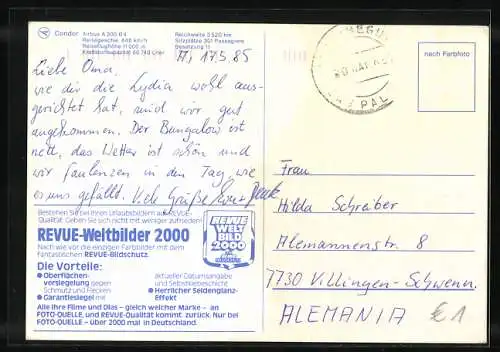 Condor
Airbus A 300 B4
Reisegeschw. 848 km/h
Reiseflughöhe 11 000 m
Reichweite 3 520 km
Sitzplätze 301 Passagiere
Besatzung 11
nach Farbfoto
M, 17.5.85
Liebe Oma,
wie dir die Lydia wohl aus-
gerichtet hat, sind wir gut
angekommen. Der Bungalow ist
nett, das Wetter ist schön und
wir faulenzen in den Tag, wie
es uns gefällt. Viele Grüße
Bestellen Sie bei Ihren Urlaubsbildern auf REVUE-
Qualität. Geben Sie sich nicht mit weniger zufrieden!
REVUE-Weltbilder 2000
Nach wie vor die einzigen Farbbilder mit dem
fantastischen REVUE-Bildschutz.
Die Vorteile:
● Oberflächen-
versiegelung gegen
Schmutz und Flecken
● Garantiesiegel mit
aktueller Datumsangabe
und Selbstklebeschicht
● Herrlicher Seidenglanz-
Effekt
Alle Ihre Filme und Dias – gleich welcher Marke – an
FOTO-QUELLE, und REVUE-Qualität kommt zurück. Nur bei
FOTO-QUELLE – über 2000 mal in Deutschland.
REVUE
WELT
BILD
2000
Frau
Hilda Schreiber
Alemannenstr. 8
7730 Villingen-Schwenn.
ALEMANIA
€1